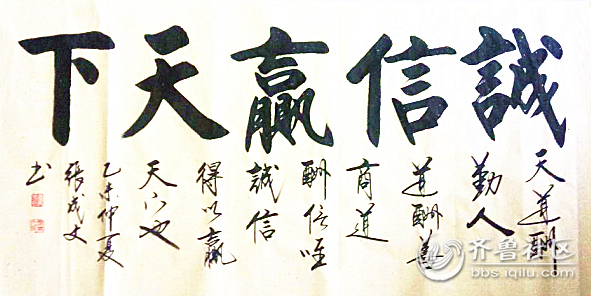 誠信贏天下
天道酬
勤人
道酬善
商道
酬信唯
誠信
得以贏
天下也
乙未仲夏
張成文
书
齐鲁社区
bbs.iqilu.com